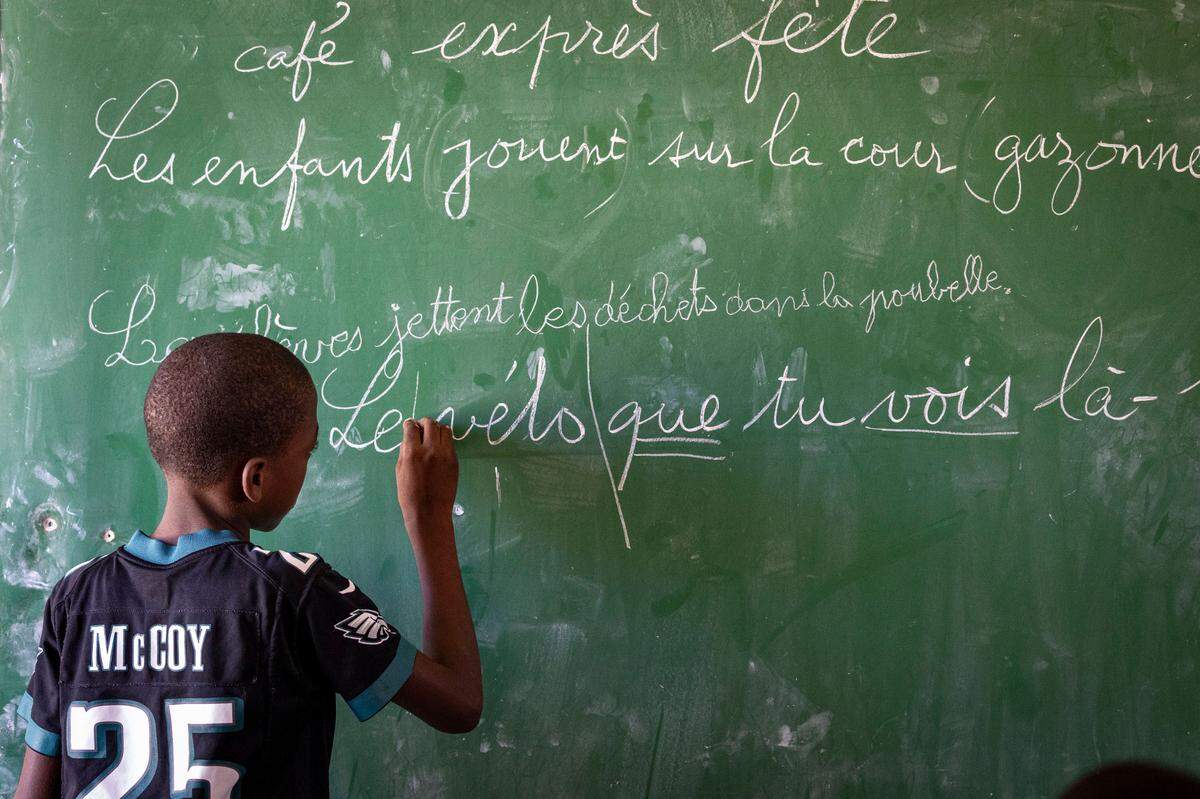 café exprès fête
Les enfants jouent sur la cour (gazonné
jettent les déchets dans la poubelle.
Le vélo que tu vois là-
McCOY
25